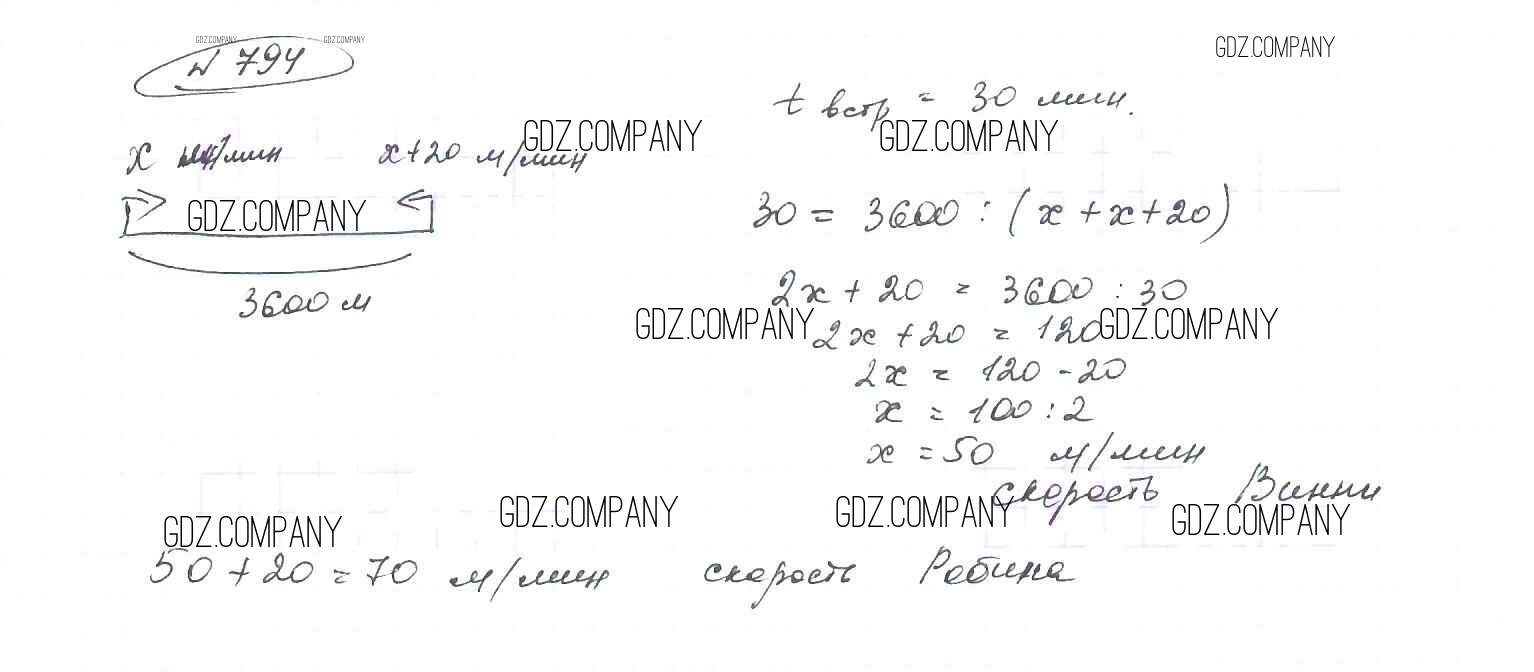 GDZ.COMPANY GDZ.COMPANY
N 794
GDZ.COMPANY
t встр = 30 мин.
GDZ.COMPANY GDZ.COMPANY
x м/мин x+20 м/мин
GDZ.COMPANY
3600 м
30 = 3600 : (x + x + 20)
2x + 20 = 3600 : 30
GDZ.COMPANY GDZ.COMPANY
2x + 20 = 120
2x = 120 - 20
x = 100 : 2
x = 50 м/мин
скорость Винни
GDZ.COMPANY GDZ.COMPANY GDZ.COMPANY GDZ.COMPANY
50 + 20 = 70 м/мин скорость Робина